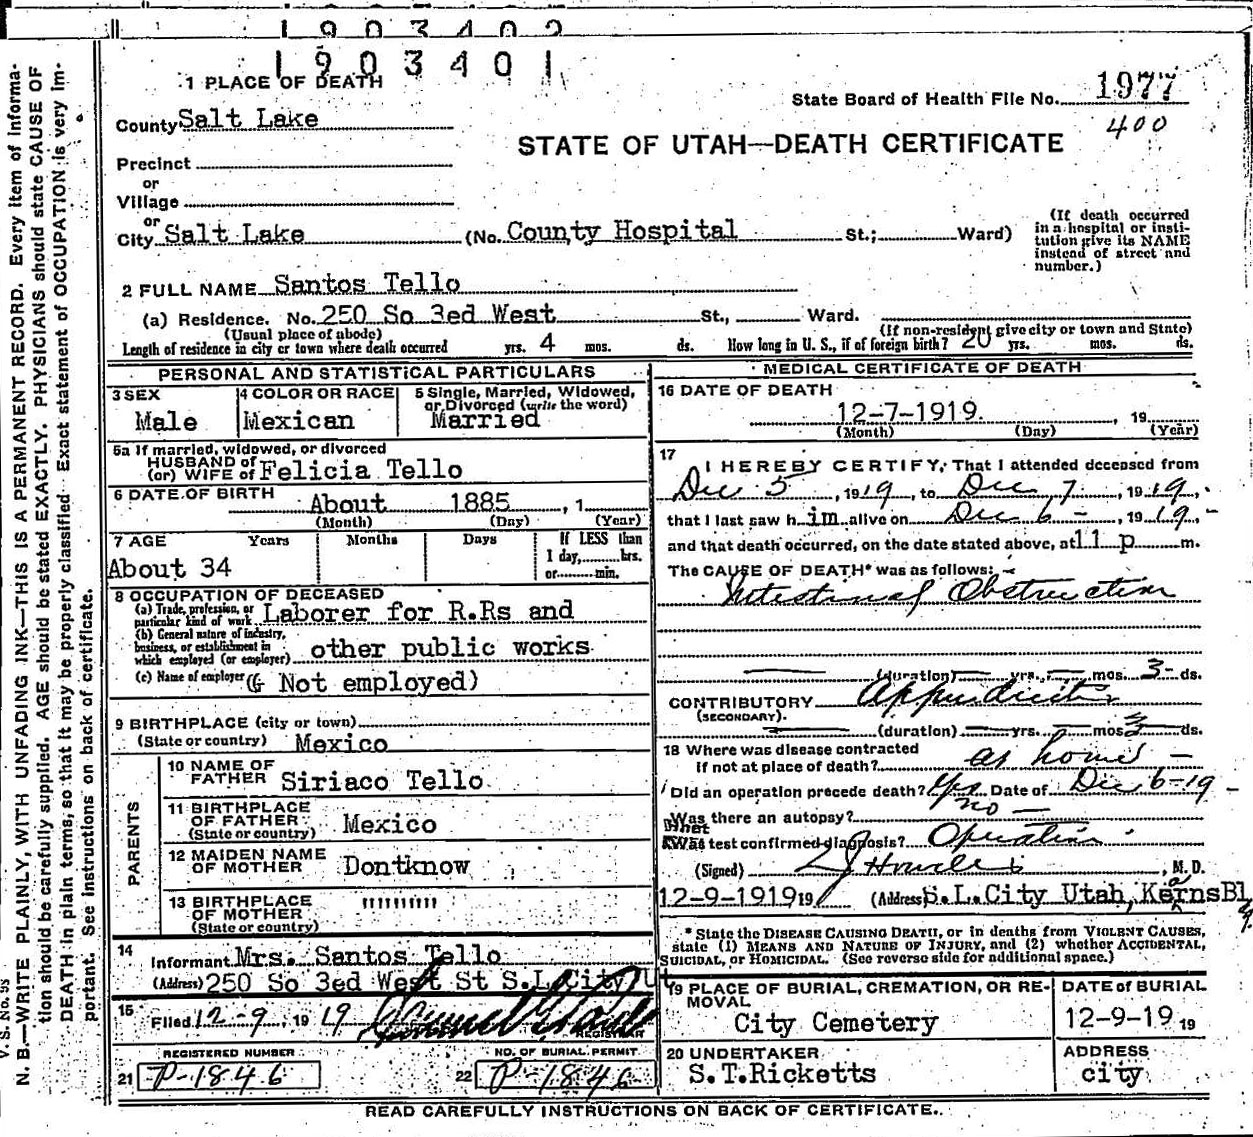 1903402
1903401
1 PLACE OF DEATH
State Board of Health File No. 1977
400
County Salt Lake
STATE OF UTAH—DEATH CERTIFICATE
Precinct
or
Village
or
City Salt Lake (No. County Hospital St.; Ward)
(If death occurred in a hospital or institution give its NAME instead of street and number.)
2 FULL NAME Santos Tello
(a) Residence. No. 250 So 3ed West St., Ward.
(Usual place of abode) (If non-resident give city or town and State)
Length of residence in city or town where death occurred yrs. 4 mos. ds. How long in U. S., if of foreign birth? 20 yrs. mos. ds.
PERSONAL AND STATISTICAL PARTICULARS
3 SEX
Male
4 COLOR OR RACE
Mexican
5 Single, Married, Widowed,
or Divorced (write the word)
Married
5a If married, widowed, or divorced
HUSBAND of
(or) WIFE of Felicia Tello
6 DATE OF BIRTH About 1885, 1
(Month) (Day) (Year)
7 AGE Years Months Days If LESS than
1 day, hrs.
or min.
About 34
8 OCCUPATION OF DECEASED
(a) Trade, profession, or
particular kind of work Laborer for R.Rs and
(b) General nature of industry,
business, or establishment in
which employed (or employer) other public works
(c) Name of employer ( Not employed)
9 BIRTHPLACE (city or town)
(State or country) Mexico
PARENTS
10 NAME OF
FATHER Siriaco Tello
11 BIRTHPLACE
OF FATHER
(State or country) Mexico
12 MAIDEN NAME
OF MOTHER Dontknow
13 BIRTHPLACE
OF MOTHER
(State or country) """""
14
Informant Mrs. Santos Tello
(Address) 250 So 3ed West St S.L.City Ut
15
Filed 12-9, 1919
REGISTRAR
REGISTERED NUMBER
21 P-1846
NO. OF BURIAL PERMIT
22 P-1846
MEDICAL CERTIFICATE OF DEATH
16 DATE OF DEATH
12-7-1919. , 19
(Month) (Day) (Year)
17
I HEREBY CERTIFY, That I attended deceased from
Dec 5, 1919, to Dec 7, 1919,
that I last saw him alive on Dec 6, 1919
and that death occurred, on the date stated above, at 11 p m.
The CAUSE OF DEATH* was as follows:
Intestinal Obstruction
(duration) yrs. mos. 3 ds.
CONTRIBUTORY Appendicitis
(SECONDARY).
(duration) yrs. mos. 3 ds.
18 Where was disease contracted
if not at place of death? at home
Did an operation precede death? Yes Date of Dec 6-19
Was there an autopsy? no
What test confirmed diagnosis? Operation
(Signed) , M. D.
12-9-1919 19 (Address) S.L.City Utah, KearnsBlg.
* State the DISEASE CAUSING DEATH, or in deaths from VIOLENT CAUSES,
state (1) MEANS AND NATURE OF INJURY, and (2) whether ACCIDENTAL,
SUICIDAL, or HOMICIDAL. (See reverse side for additional space.)
19 PLACE OF BURIAL, CREMATION, OR RE-
MOVAL
City Cemetery
DATE of BURIAL
12-9-19 19
20 UNDERTAKER
S.T.Ricketts
ADDRESS
city
READ CAREFULLY INSTRUCTIONS ON BACK OF CERTIFICATE.
V. S. No. 95
N. B.—WRITE PLAINLY, WITH UNFADING INK—THIS IS A PERMANENT RECORD. Every item of informa-
tion should be carefully supplied. AGE should be stated EXACTLY. PHYSICIANS should state CAUSE OF
DEATH in plain terms, so that it may be properly classified. Exact statement of OCCUPATION is very im-
portant. See instructions on back of certificate.